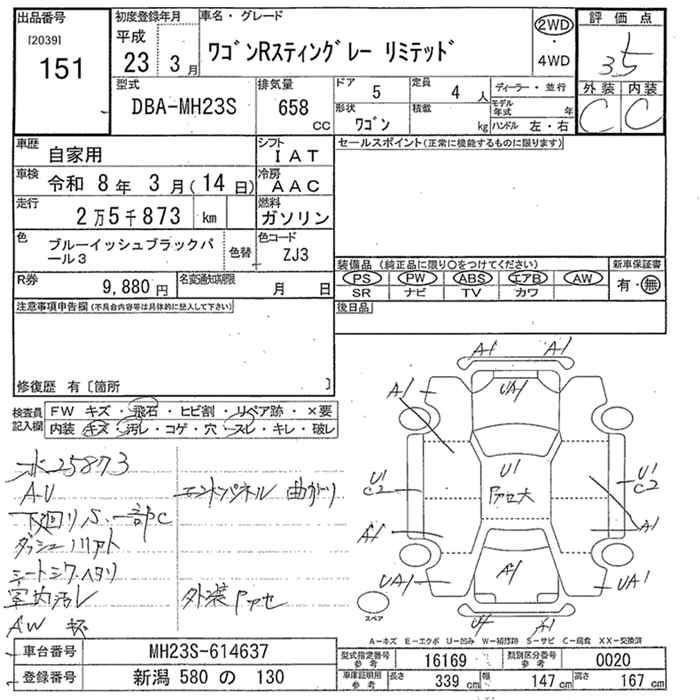 出品番号
[2039]
151
初度登録年月
平成
23 3月
車名・グレード
ワゴンRスティングレー リミテッド
2WD
・
4WD
評価点
3.5
外装 内装
C C
型式
DBA-MH23S
排気量
658
cc
ドア
5
定員
4 人
形状
ワゴン
積載
kg
ディーラー・並行
モデル年式 年
ハンドル 左・右
車歴
自家用
シフト
IAT
車検
令和 8年 3月(14日)
冷房
AAC
走行
2万5千873 km
燃料
ガソリン
色
ブルーイッシュブラックパール3
色替
色コード
ZJ3
R券
9,880円
名変通知期限
月 日
セールスポイント(正常に機能するものに限ります)
装備品 (純正品に限り○をつけてください)
PS PW ABS エアB AW
SR ナビ TV カワ
新車保証書
有・無
後日品
注意事項申告欄(不具合内容等は具体的に記入して下さい)
修復歴 有〔箇所 〕
検査員記入欄
FW キズ・飛石・ヒビ割・リペア跡・×要
内装 キズ・汚レ・コゲ・穴・スレ・キレ・破レ
25873
AU
エンドパネル 曲がり
下回りS、一部C
シートシワ・ヘタリ
室内汚レ
外装
AW
A1 A1
A1
UA1
U1
U1
C2
U1
C2
A1
A1
A1
UA1
UA1
U1
A1
スペア
A-キズ E-エクボ U-凹み W-補修跡 S-サビ C-腐食 XX-交換済
車台番号
MH23S-614637
登録番号
新潟 580 の 130
型式指定番号
参考
16169
類別区分番号
参考
0020
車庫証明用
参考
長さ
339 cm
幅
147 cm
高さ
167 cm